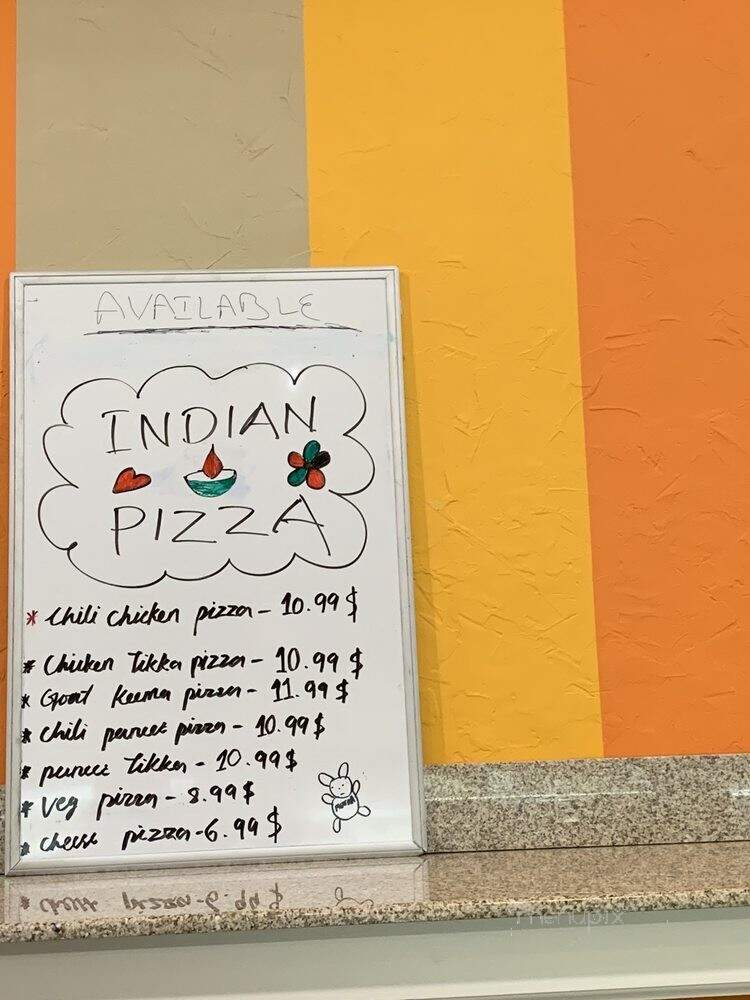 AVAILABLE
INDIAN
PIZZA
* Chili chicken pizza - 10.99 $
* Chicken Tikka pizza - 10.99 $
* Goat Keema pizza - 11.99 $
* Chili paneer pizza - 10.99 $
* paneer Tikka - 10.99 $
* Veg pizza - 8.99 $
* cheese pizza - 6.99 $
menupix